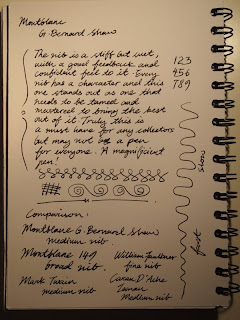 Montblanc
G. Bernard Shaw
The nib is a stiff but wet,
with a good feedback and
confident feel to it. Every
nib has a character and this
one stands out as one that
needs to be tamed and
mastered to bring the best
out of it. Truly this is
a must have for any collectors
but may not be a pen
for everyone. A magnificient
pen!
123
456
789
slow
fast
Comparison:
Montblanc G. Bernard Shaw
medium nib
Montblanc 149
broad nib.
Mark Twain
medium nib
William Faulkner
fine nib
Caran D'Ache
medium nib